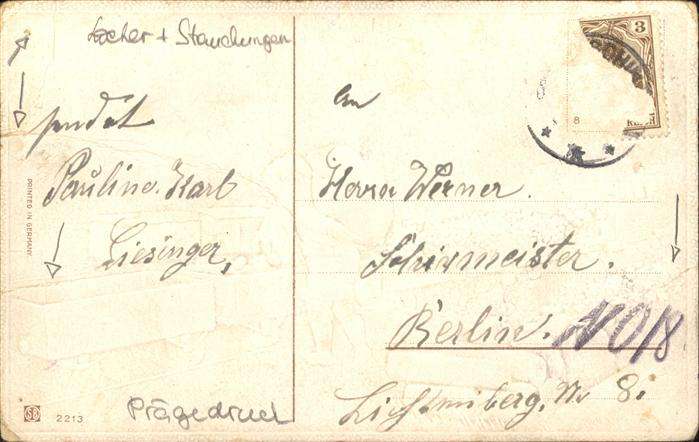 Löcher + Stauchungen
sendet
Pauline. Karl
Liesinger,
PRINTED IN GERMANY
SB 2213
Prägedruck
3
8
An
Herrn Werner.
Schirmeister.
Berlin. NO/18
Lichtenberg. Nr 8.